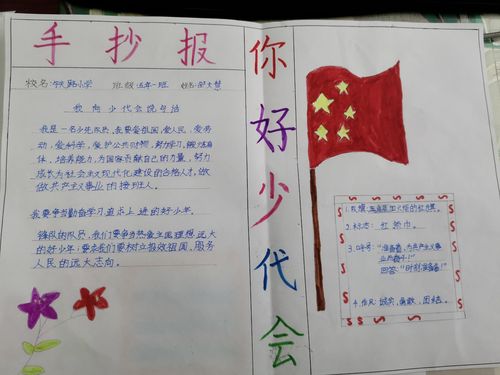 手抄报
校名:铁路小学 班级:五年一班 姓名:
我向少代会说句话
我是一名少先队员,我要爱祖国,爱人民,爱劳
动,爱科学,爱护公共财物,努力学习,锻炼身
体,培养能力,为国家贡献自己的力量,努力
成长为社会主义现代化建设的合格人才,做
做共产主义事业的接班人。
我要争当勤奋学习追求上进的好少年。
锋队的队员,我们要争为热爱主国理想远大
的好少年;要求我们要树立报效祖国、服务
人民的远大志向。
你好少代会
1.队旗:五角星加火炬的红旗。
2.标志:红领巾。
3.口号:"准备着,为共产主义事
业而奋斗!"
回答:"时刻准备着!"
4.作风:诚实,勇敢,团结。